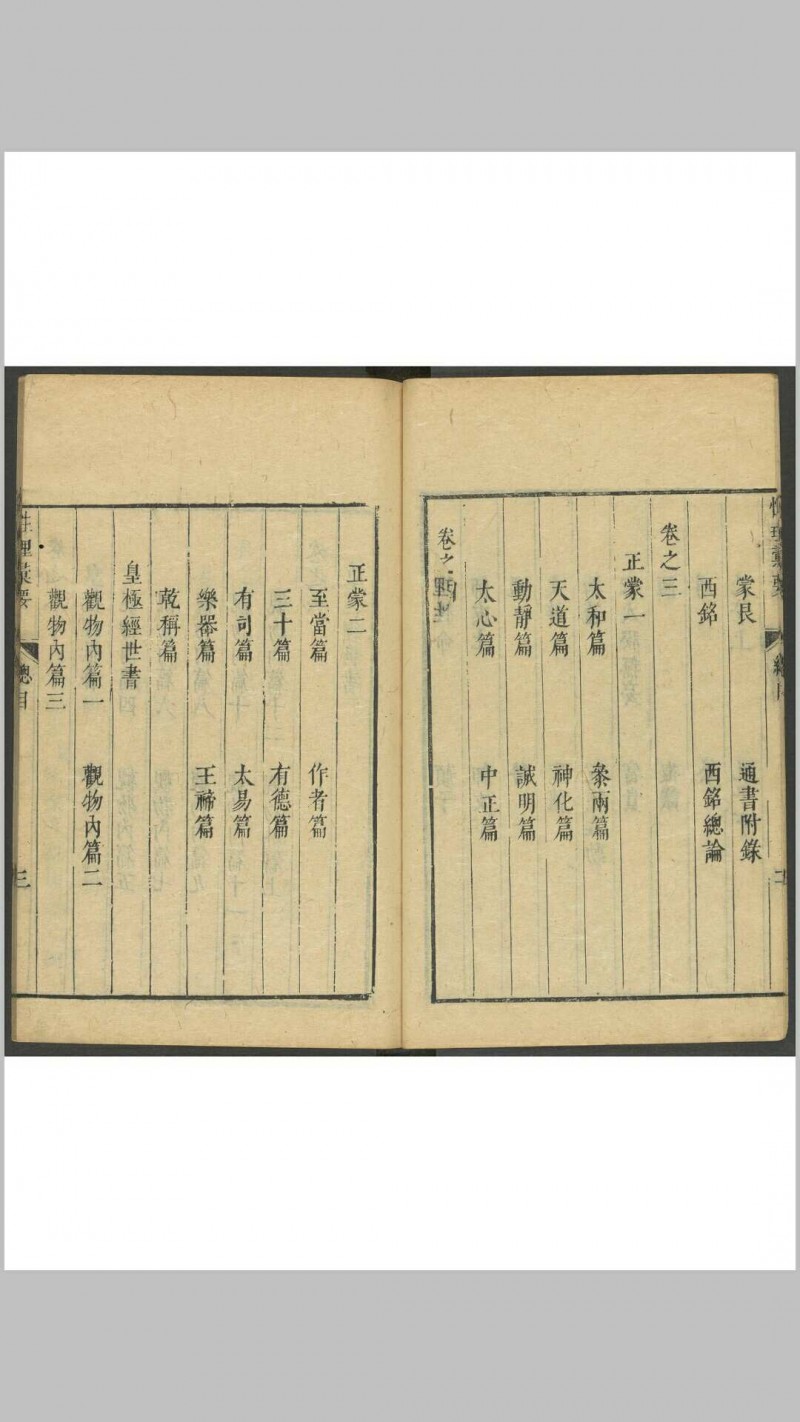 蒙艮 通書附錄
西銘 西銘總論
卷之三
正蒙一
太和篇 叅兩篇
天道篇 神化篇
動靜篇 誠明篇
太心篇 中正篇
卷之四
正蒙二
至當篇 作者篇
三十篇 有德篇
有司篇 太易篇
樂器篇 王禘篇
乾稱篇
皇極經世書
觀物內篇一 觀物內篇二
觀物內篇三
性理葉要 總目 三